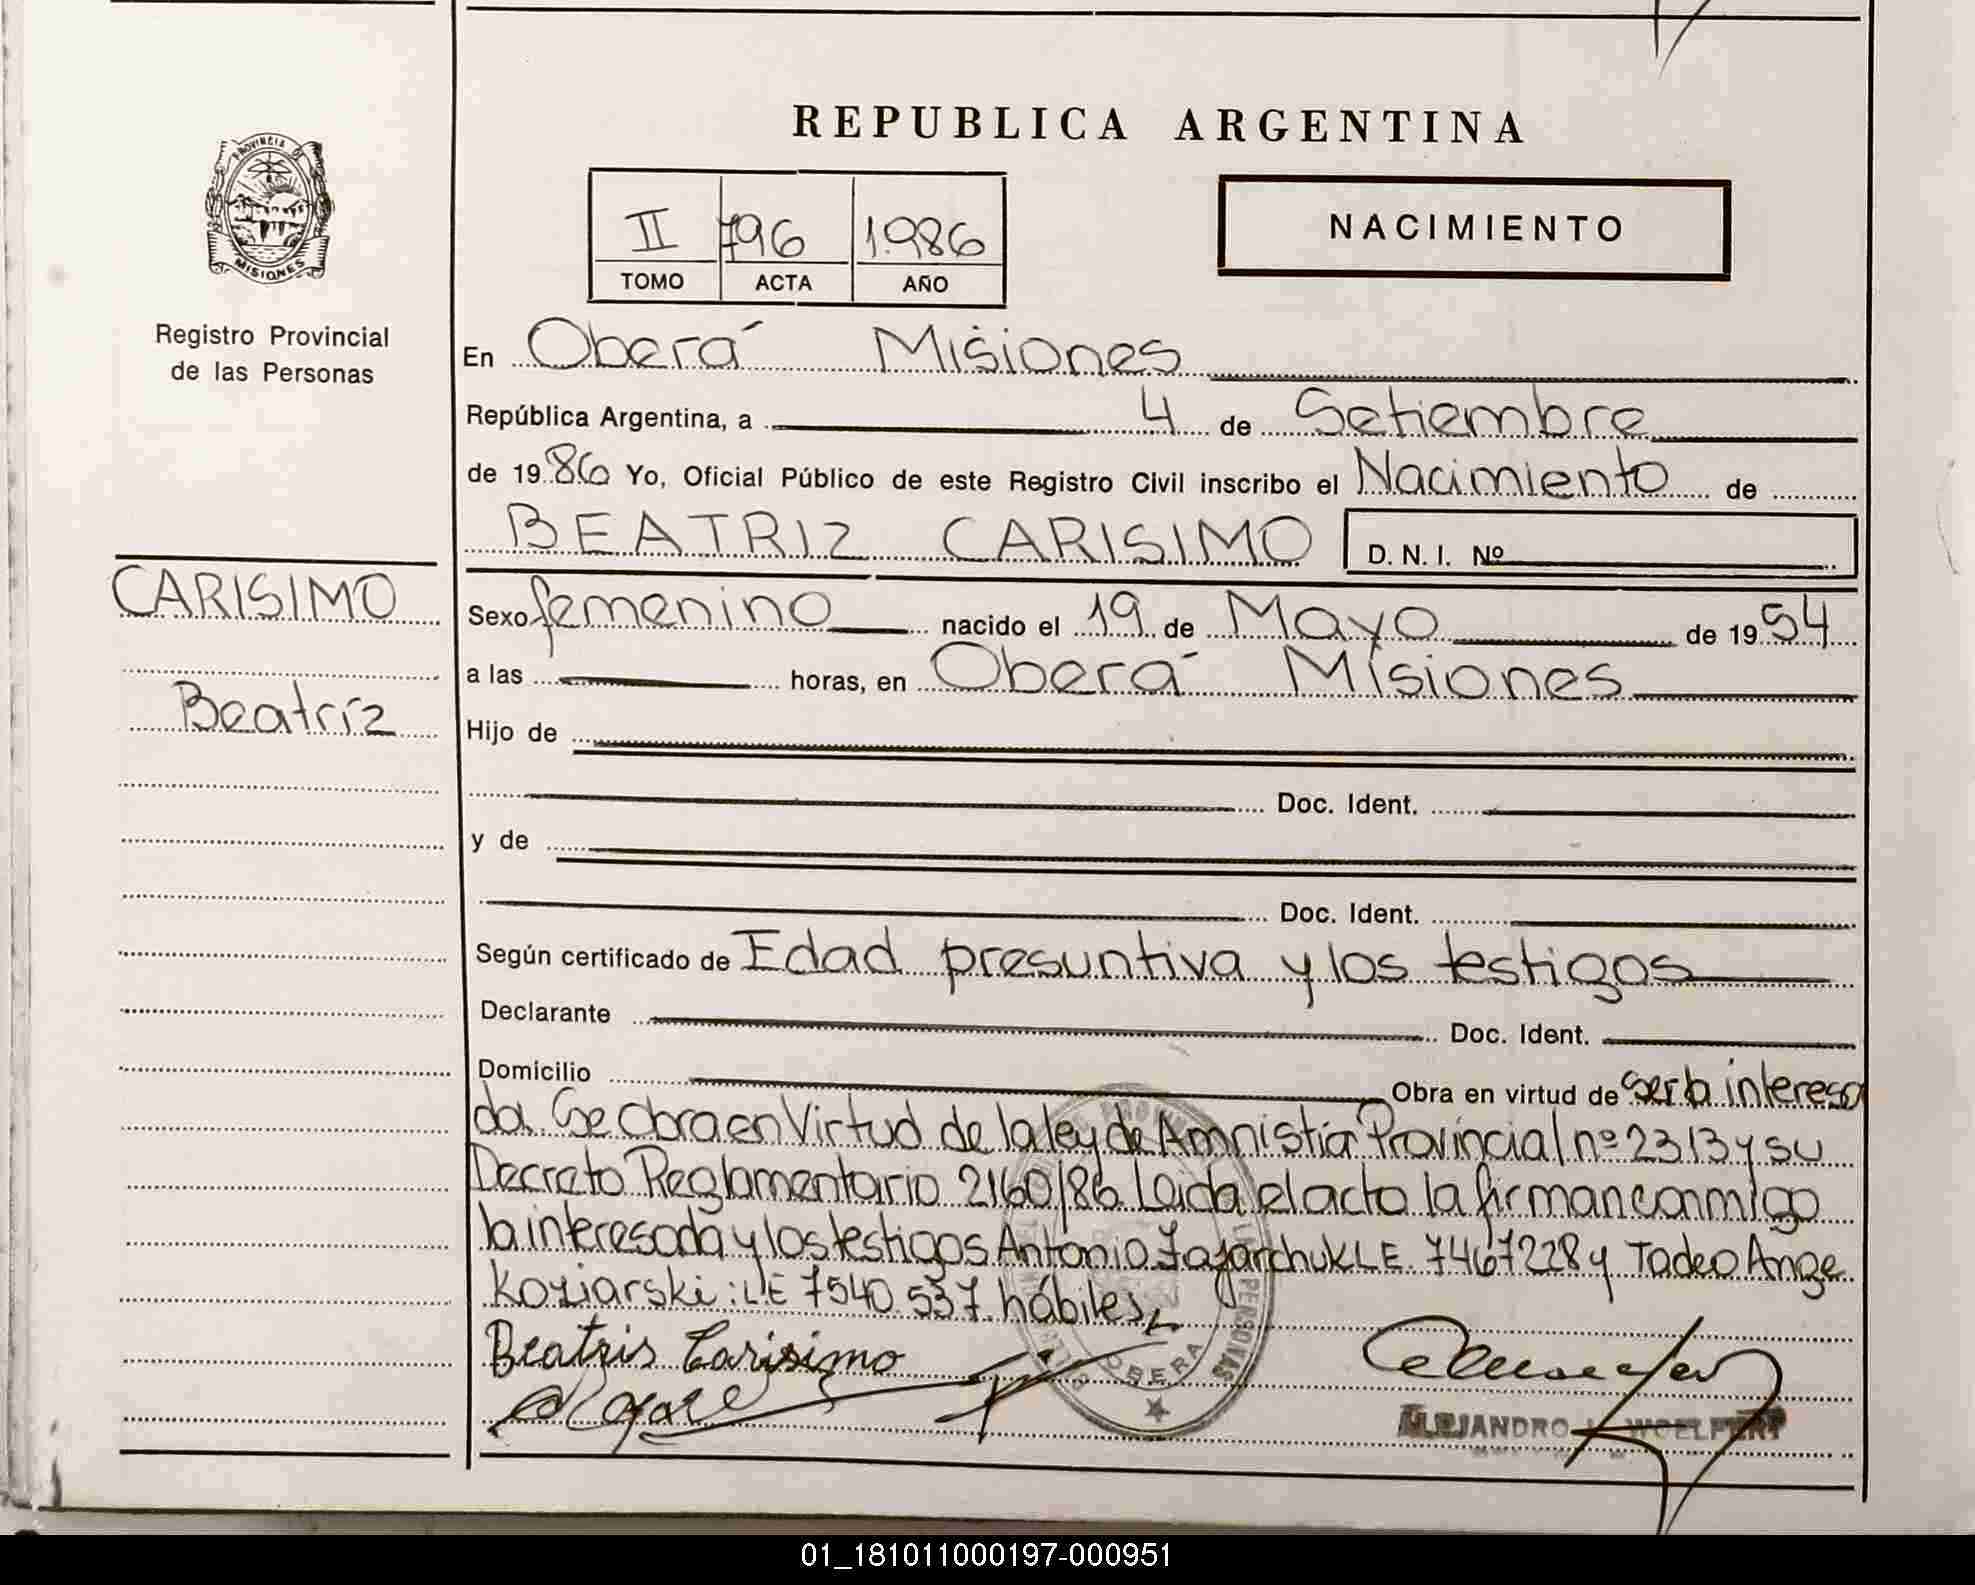 REPUBLICA ARGENTINA
PROVINCIA D
MISIONES
II 796 1.986
TOMO ACTA AÑO
NACIMIENTO
Registro Provincial
de las Personas
En Oberá Misiones
República Argentina, a 4 de Setiembre
de 19 86 Yo, Oficial Público de este Registro Civil inscribo el Nacimiento de
BEATRIZ CARISIMO D. N. I. Nº
CARISIMO
Beatríz
Sexo femenino nacido el 19 de Mayo de 19 54
a las horas, en Oberá Misiones
Hijo de
Doc. Ident.
y de
Doc. Ident.
Según certificado de Edad presuntiva y los testigos
Declarante Doc. Ident.
Domicilio Obra en virtud de ser la interesa
da. Se Obra en Virtud de la ley de Amnistía Provincial nº 2313 y su
Decreto Reglamentario 2160/86. Leida el acto la firman conmigo
la interesada y los testigos Antonio LE. 7467228 y Tadeo Ange
Koziarski: LE 7540.537. hábiles,
Beatris Carisimo
OBERA
ALEJANDRO WOELFERT
01_181011000197-000951